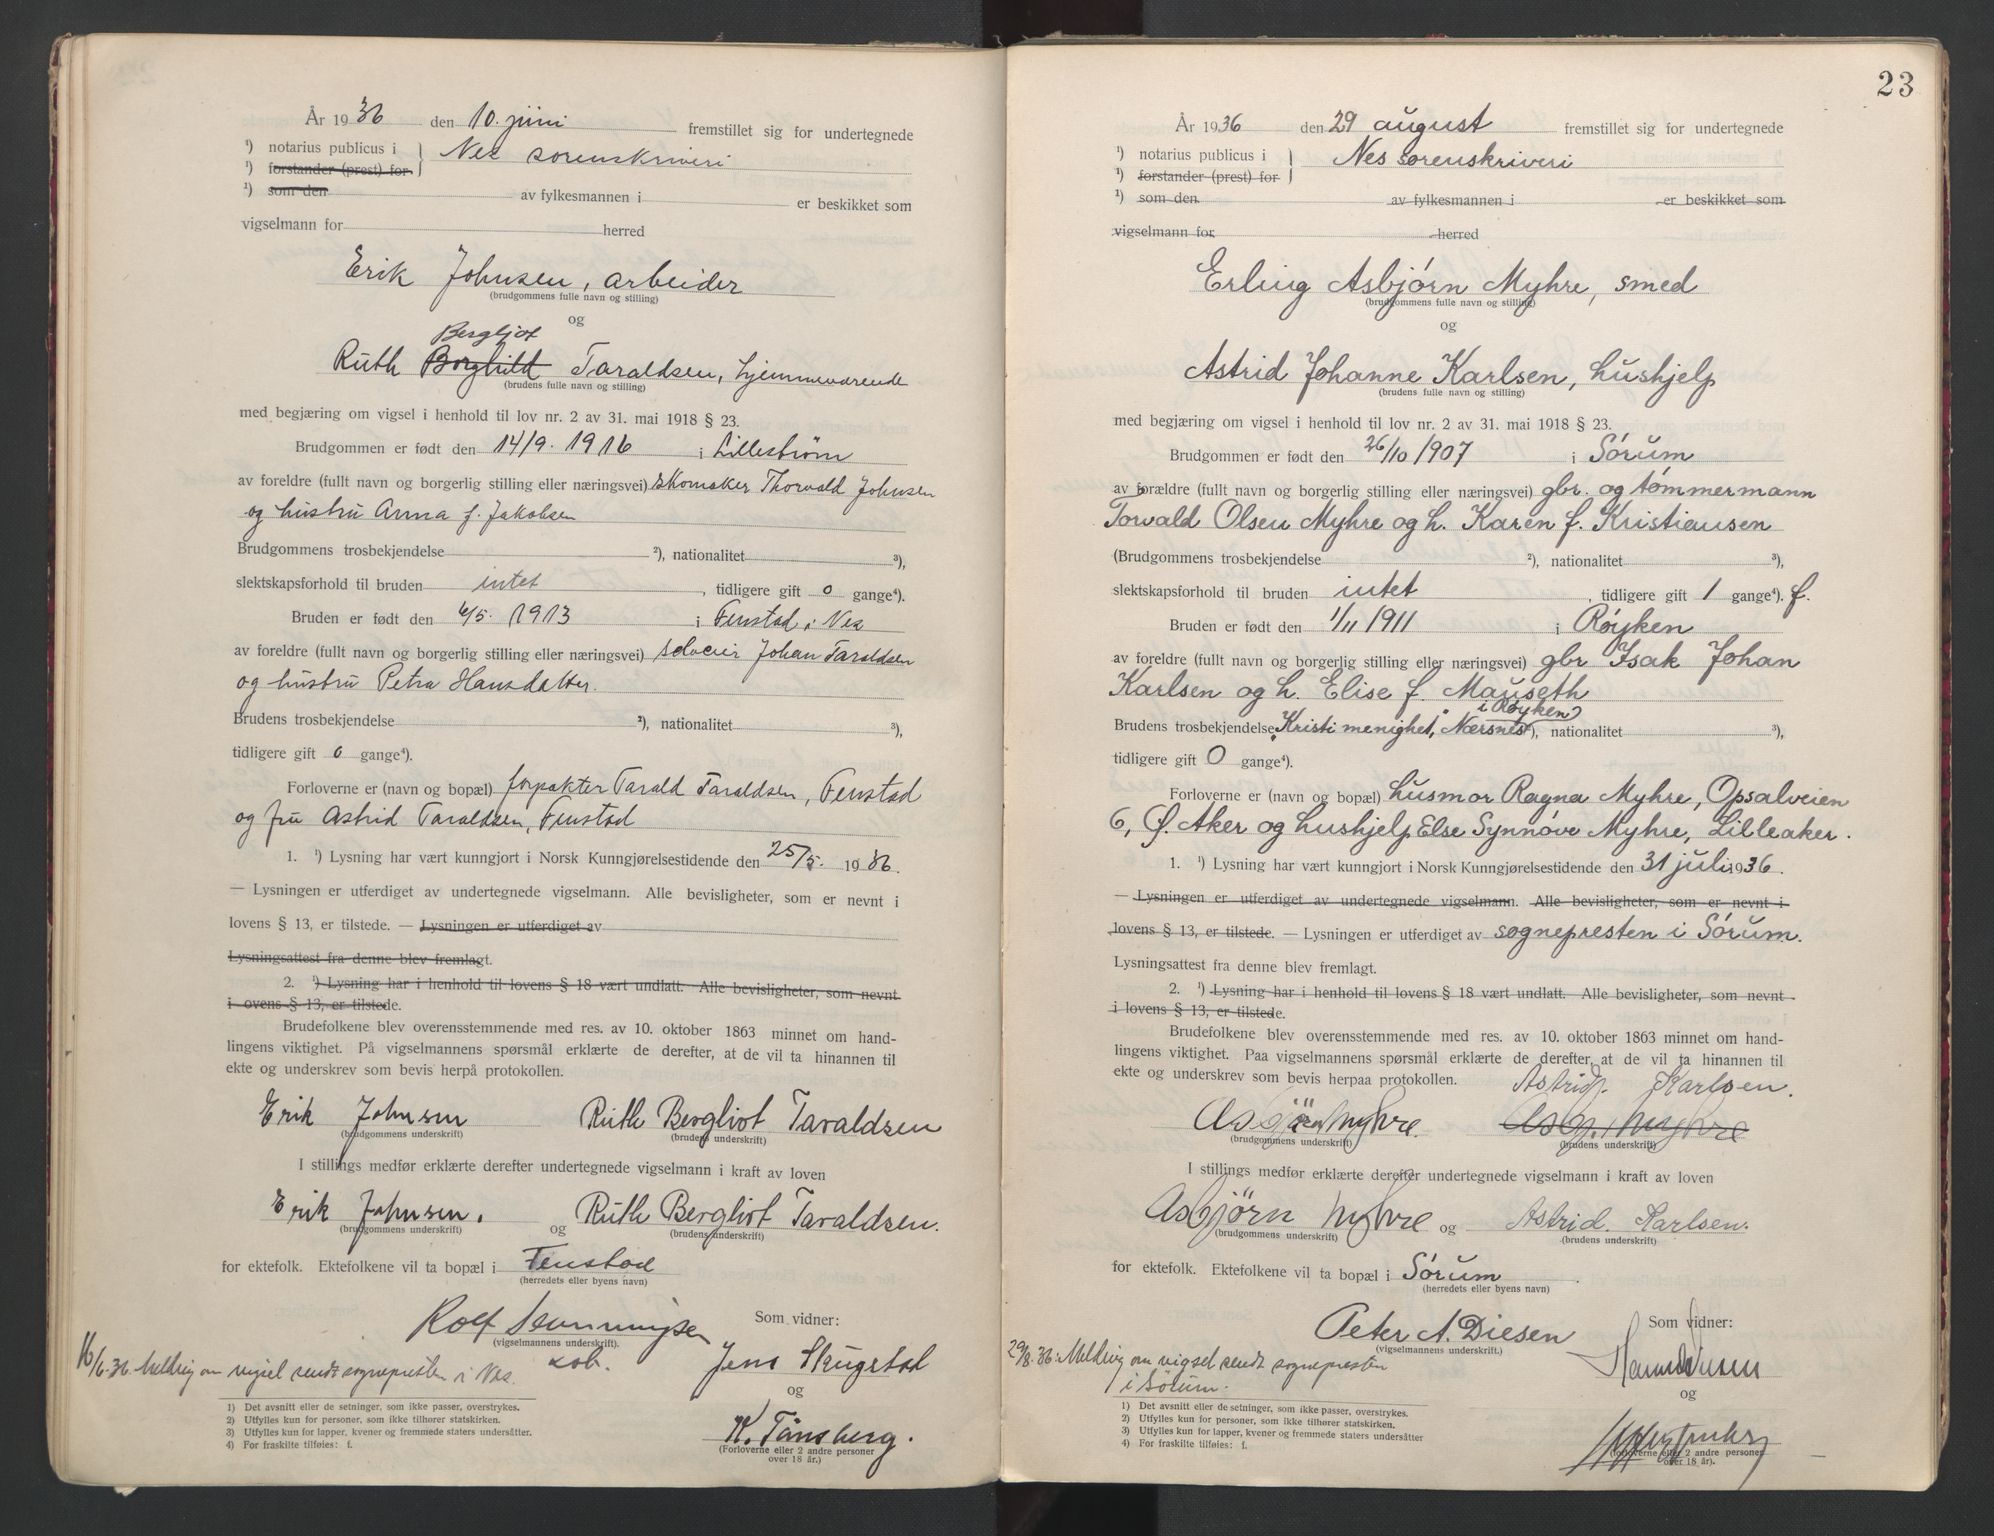 År 1936 den 10. juni fremstillet sig for undertegnede
¹) notarius publicus i } Nes sorenskriveri
¹) forstander (prest) for
¹) som den av fylkesmannen i er beskikket som
vigselmann for herred
Erik Johnsen, arbeider
(brudgommens fulle navn og stilling)
og
Bergljot
Ruth Borghild Taraldsen, hjemmeværende
(brudens fulle navn og stilling)
med begjæring om vigsel i henhold til lov nr. 2 av 31. mai 1918 § 23.
Brudgommen er født den 14/9. 1916 i Lillestrøm
av foreldre (fullt navn og borgerlig stilling eller næringsvei) skomaker Thorvald Johnsen
og hustru Anna f. Jakobsen
Brudgommens trosbekjendelse ²), nationalitet ³),
slektskapsforhold til bruden intet, tidligere gift 0 gange⁴).
Bruden er født den 6/5. 1913 i Fenstad i Nes
av foreldre (fullt navn og borgerlig stilling eller næringsvei) selveier Johan Taraldsen
og hustru Petra Hansdatter.
Brudens trosbekjendelse ²), nationalitet ³),
tidligere gift 0 gange⁴).
Forloverne er (navn og bopæl) forpakter Tarald Taraldsen, Fenstad
og fru Astrid Taraldsen, Fenstad
1. ¹) Lysning har vært kunngjort i Norsk Kunngjørelsestidende den 25/5. 1936.
— Lysningen er utferdiget av undertegnede vigselmann. Alle bevisligheter, som er nevnt i
lovens § 13, er tilstede. — Lysningen er utferdiget av
Lysningsattest fra denne blev fremlagt.
2. ¹) Lysning har i henhold til lovens § 18 vært undlatt. Alle bevisligheter, som nevnt
i ovens § 13, er tilstede.
Brudefolkene blev overensstemmende med res. av 10. oktober 1863 minnet om hand-
lingens viktighet. På vigselmannens spørsmål erklærte de derefter, at de vil ta hinannen til
ekte og underskrev som bevis herpå protokollen.
Erik Johnsen Ruth Bergliot Taraldsen
(brudgommens underskrift) (brudens underskrift)
I stillings medfør erklærte derefter undertegnede vigselmann i kraft av loven
Erik Johnsen. og Ruth Bergliot Taraldsen.
(brudgommens underskrift) (brudens underskrift)
for ektefolk. Ektefolkene vil ta bopæl i Fenstad
(herredets eller byens navn)
Rolf Som vidner:
(vigselmannens underskrift).
16/6.36. Melding om vigsel sendt sognepresten i Nes. Jens Skugstad
og
K. Tånsberg.
(Forloverne eller 2 andre personer
over 18 år.)
1) Det avsnitt eller de setninger, som ikke passer, overstrykes.
2) Utfylles kun for personer, som ikke tilhører statskirken.
3) Utfylles kun for lapper, kvener og fremmede staters undersåtter.
4) For fraskilte tilføies: f.
23
År 1936 den 29 august fremstillet sig for undertegnede
¹) notarius publicus i } Nes sorenskriveri
¹) forstander (prest) for
¹) som den av fylkesmannen i er beskikket som
vigselmann for herred
Erling Asbjørn Myhre, smed
(brudgommens fulle navn og stilling)
og
Astrid Johanne Karlsen, hushjelp
(brudens fulle navn og stilling)
med begjæring om vigsel i henhold til lov nr. 2 av 31. mai 1918 § 23.
Brudgommen er født den 26/10 1907 i Sørum
av forældre (fullt navn og borgerlig stilling eller næringsvei) gbr. og tømmermann
Torvald Olsen Myhre og h. Karen f. Kristiansen
(Brudgommens trosbekjendelse ²), nationalitet ³),
slektskapsforhold til bruden intet, tidligere gift 1 gange⁴). f.
Bruden er født den 1/11 1911 i Røyken
av foreldre (fullt navn og borgerlig stilling eller næringsvei) gbr Isak Johan
Karlsen og h. Elise f. Mauseth
i Røyken
Brudens trosbekjendelse „Kristi menighet“, Nærsnes ²), nationalitet ³),
tidligere gift 0 gange⁴).
Forloverne er (navn og bopæl) husmor Ragna Myhre, Opsalveien
6, Ø. Aker og hushjelp Else Synnøve Myhre, Lilleaker.
1. ¹) Lysning har vært kunngjort i Norsk Kunngjørelsestidende den 31 juli 1936.
— Lysningen er utferdiget av undertegnede vigselmann. Alle bevisligheter, som er nevnt i
lovens § 13, er tilstede. — Lysningen er utferdiget av sognepresten i Sørum.
Lysningsattest fra denne blev fremlagt.
2. ¹) Lysning har i henhold til lovens § 18 vært undlatt. Alle bevisligheter, som nevnt
i lovens § 13, er tilstede.
Brudefolkene blev overensstemmende med res. av 10. oktober 1863 minnet om hand-
lingens viktighet. Paa vigselmannens spørsmål erklærte de derefter, at de vil ta hinannen til
ekte og underskrev som bevis herpaa protokollen. Astrid Karlsen.
Asbjörn Myhre. Asbj. Myhre
(brudgommens underskrift) (brudens underskrift)
I stillings medfør erklærte derefter undertegnede vigselmann i kraft av loven
Asbjörn Myhre og Astrid. Karlsen.
(brudgommens underskrift) (brudens underskrift)
for ektefolk. Ektefolkene vil ta bopæl i Sørum
(herredets eller byens navn)
Peter A. Diesen Som vidner:
(vigselmannens underskrift.)
29/8.36. Melding om vigsel sendt sognepresten
i Sörum.
og
(forloverne eller 2 andre personer
over 18 år).
1) Det avsnitt eller de setninger, som ikke passer, overstrykes.
2) Utfylles kun for personer, som ikke tilhører statskirken.
3) Utfylles kun for lapper, kvener og fremmede staters undersåtter
4) For fraskilte tilføies: f.